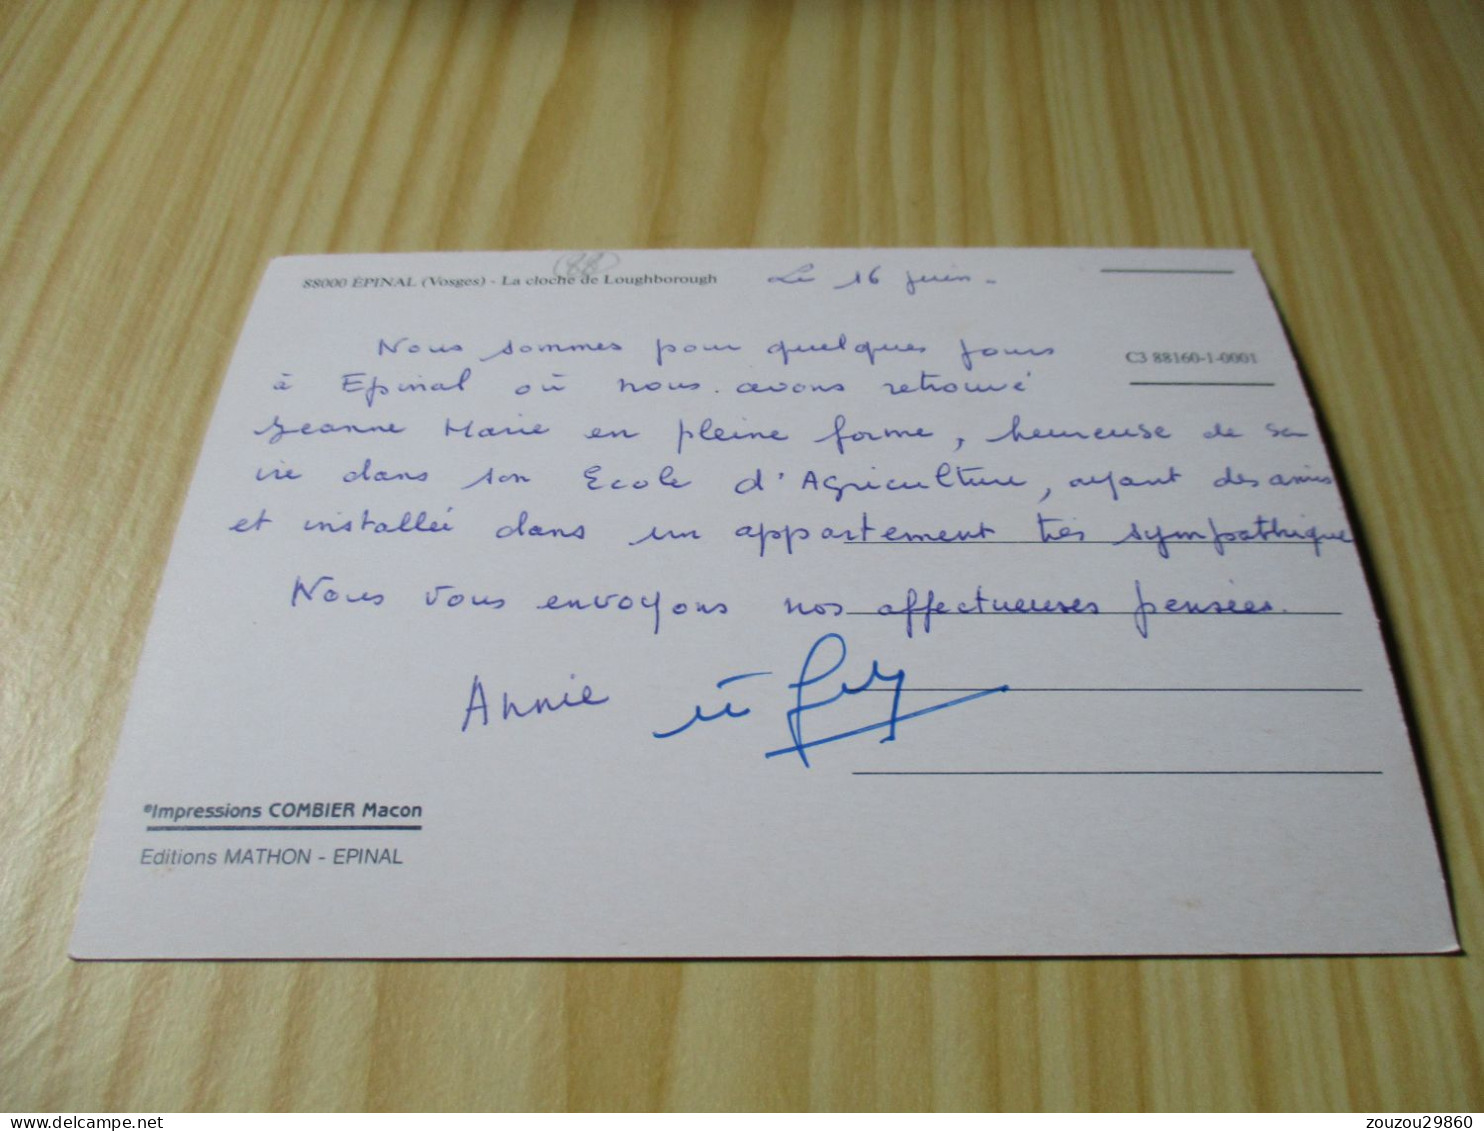 88000 ÉPINAL (Vosges) - La cloche de Loughborough
(88)
Le 16 juin -
C3 88160-1-0001
Nous sommes pour quelques jours
à Epinal où nous avons retrouvé
Jeanne Marie en pleine forme, heureuse de sa
vie dans son Ecole d'Agriculture, ayant des amis
et installée dans un appartement très sympathique
Nous vous envoyons nos affectueuses pensées.
Annie et Guy
®Impressions COMBIER Macon
Editions MATHON - EPINAL
zouzou29860